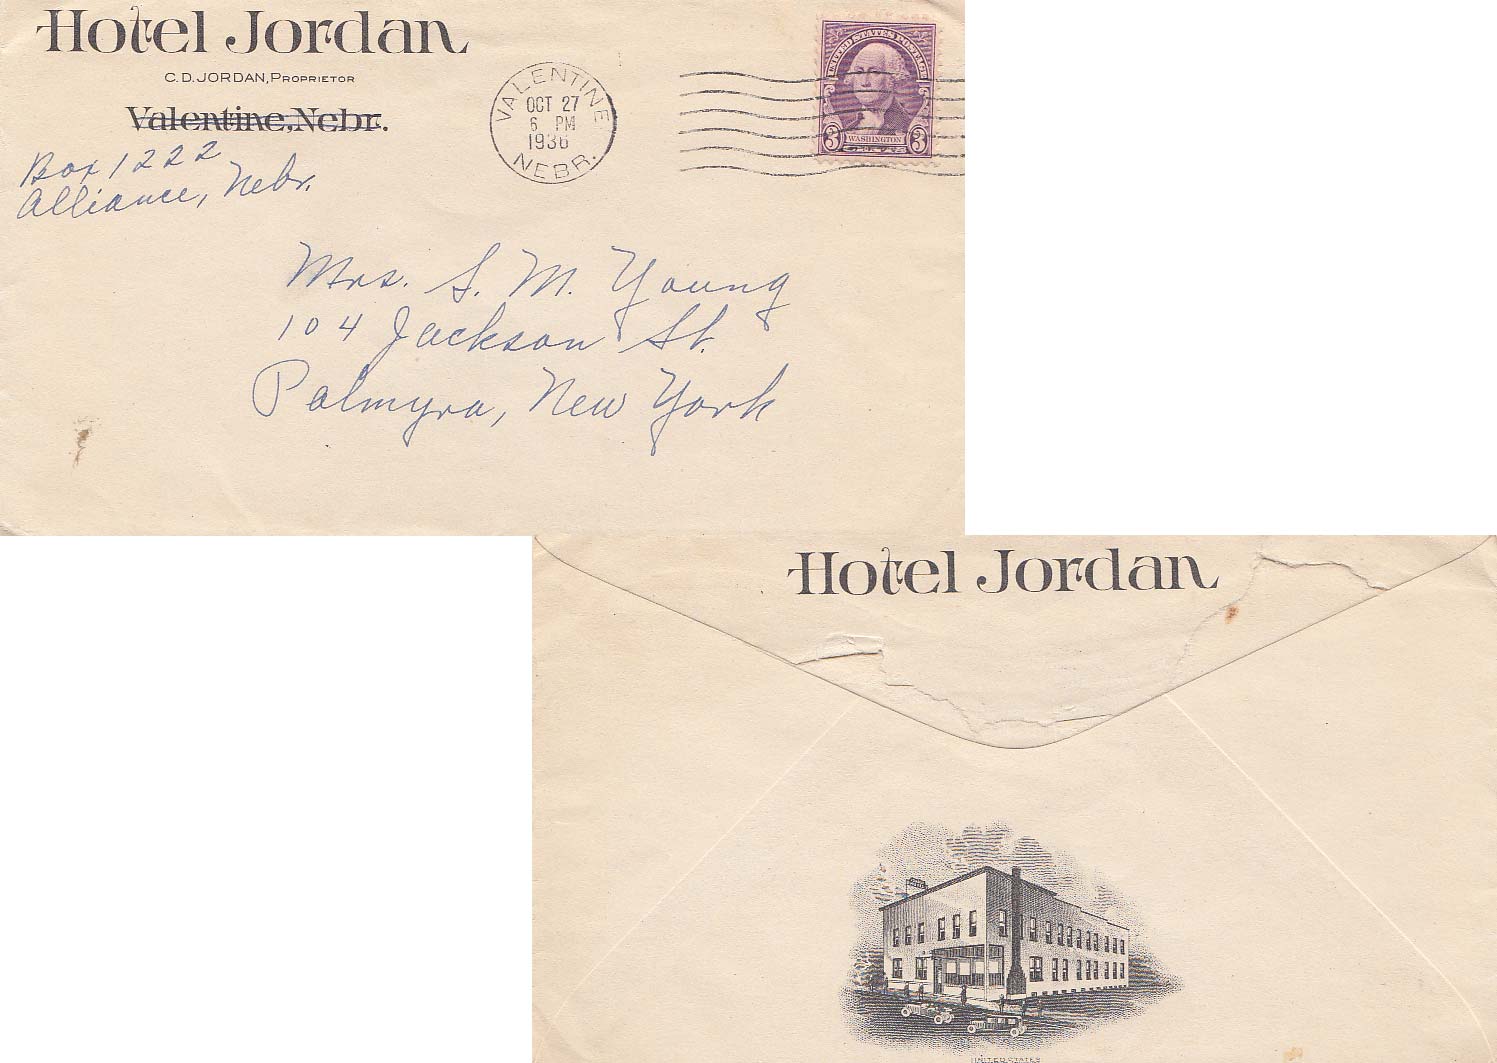 Hotel Jordan
C. D. JORDAN, PROPRIETOR
Valentine, Nebr.
Box 1222
Alliance, Nebr.
VALENTINE
OCT 27
6 PM
1936
NEBR.
UNITED STATES POSTAGE
3 WASHINGTON 3
Mrs. S. M. Young
104 Jackson St.
Palmyra, New York
Hotel Jordan
UNITED STATES